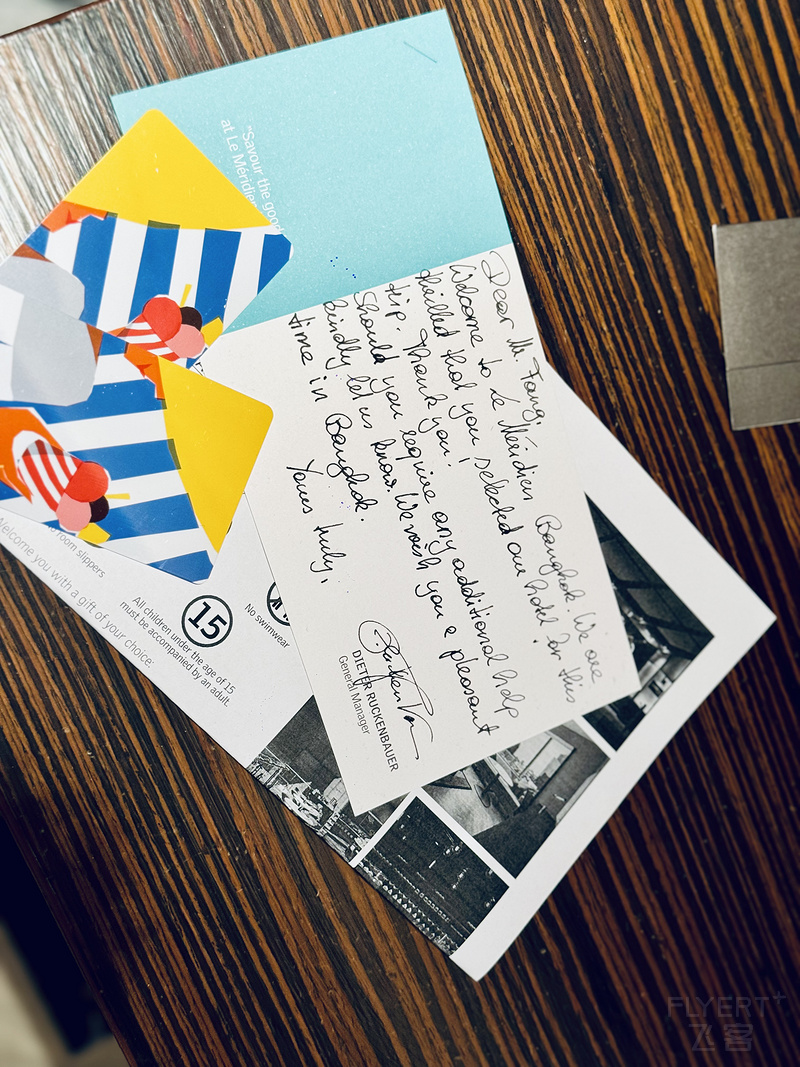 "Savour the good
at Le Méridien
Dear Mr. Fang,
Welcome to Le Méridien Bangkok. We are
thrilled that you selected our hotel for this
trip. Thank you!
Should you require any additional help
kindly let us know. We wish you a pleasant
time in Bangkok.
Yours truly,
DIETER RUCKENBAUER
General Manager
room slippers
Welcome you with a gift of your choice:
15
All children under the age of 15
must be accompanied by an adult.
No swimwear
FLYERT+
飞客